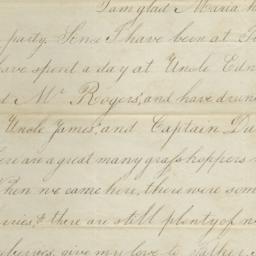 I am glad Maria h
party. Since I have been at
have spent a day at Uncle Edm
Mr Rogers', and have drun
Uncle James', and Captain Du
ere are a great many grasshoppers
When we came here, there were som
erries, & there are still plenty of
eberries, give my love to Father,